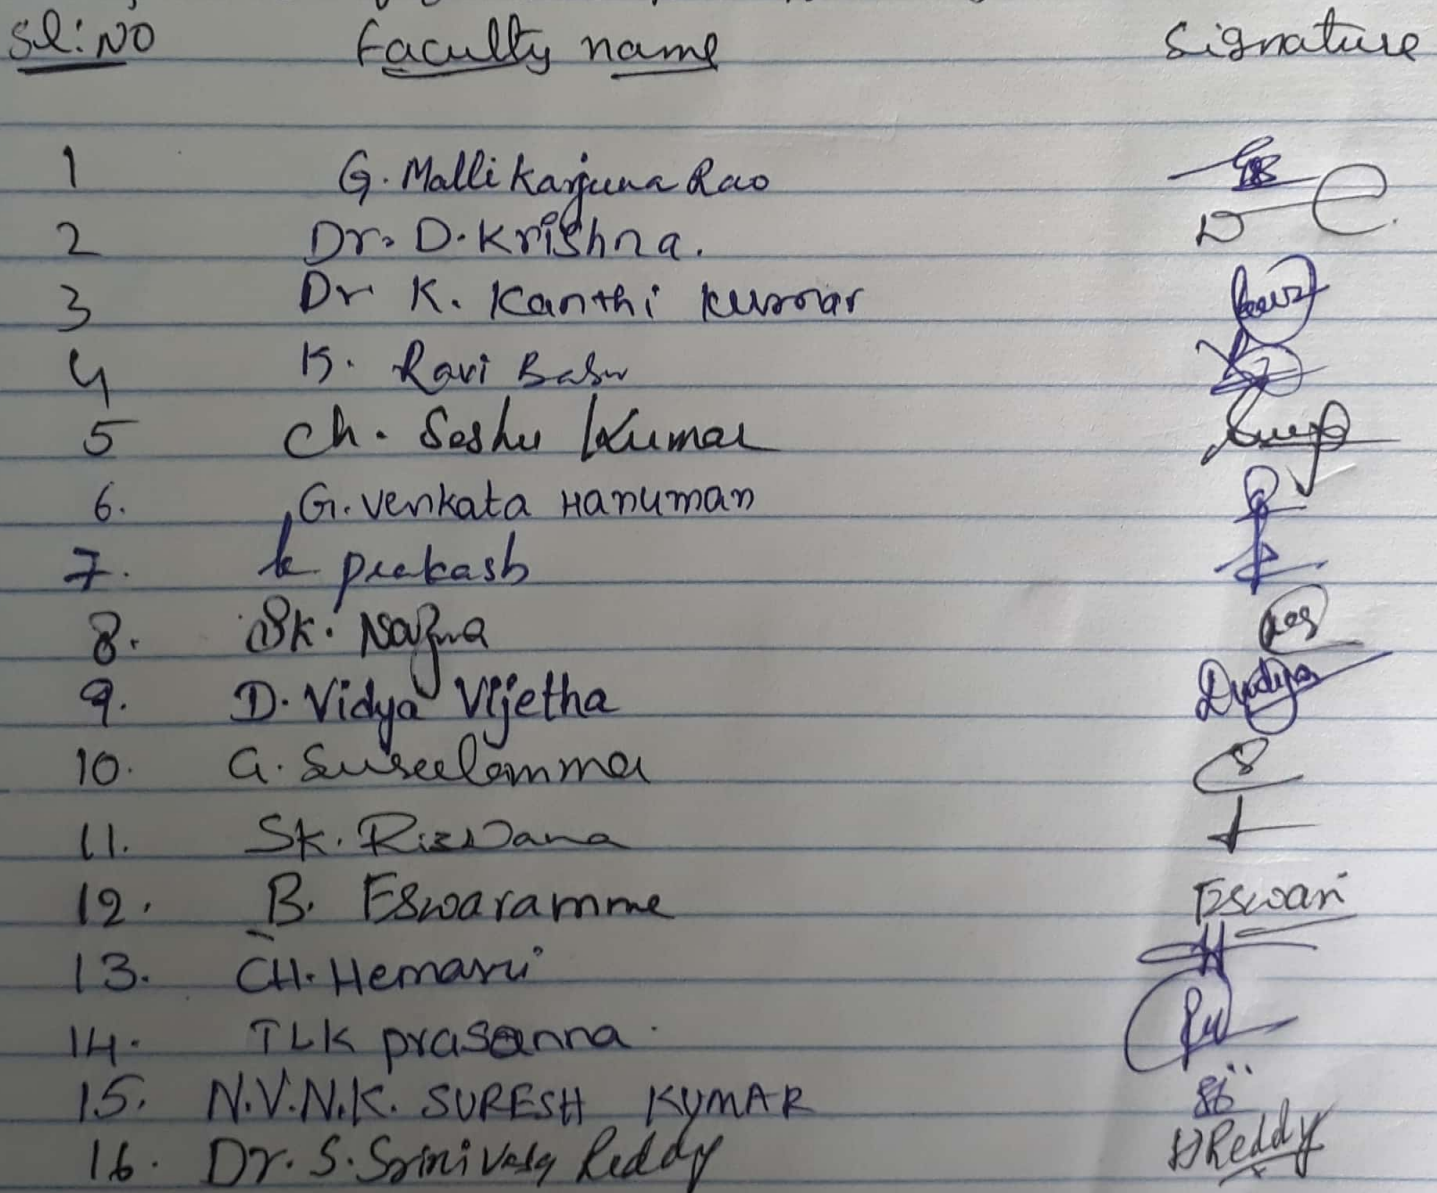 Sl: NO Faculty name Signature
1 G. Malli Karjuna Rao
2 Dr. D. Krishna. D
3 Dr K. Kanthi Kumar
4 K. Ravi Babu
5 Ch. Seshu Kumar
6. G. Venkata Hanuman
7. K prakash
8. Sk. Nazma
9. D. Vidya Vijetha Dvidya
10. G. Suseelamma S
11. Sk. Rizwana
12. B. Eswaramma Eswari
13. CH. Hemasri H
14. TLK prasanna.
15. N.V.N.K. SURESH KUMAR
16. Dr. S. Srinivasa Reddy Reddy